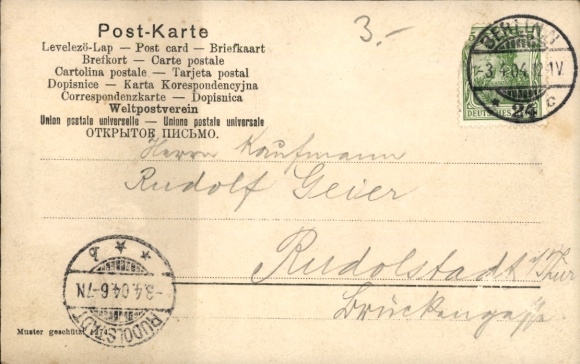 Post-Karte
Levelező-Lap — Post card — Briefkaart
Brefkort — Carte postale
Cartolina postale — Tarjeta postal
Dopisnice — Karta Korespondencyjna
Correspondenzkarte — Dopisnica
Weltpostverein
Union postale universelle — Unione postale universale
ОТКРЫТОЕ ПИСЬМО.
3.-
BERLIN N
-3.4.04.
24 c
DEUTSCHES
Herrn Kaufmann
Rudolf Geier
Rudolstadt i/Thür
Brückengasse
b
-3.4.04.6-7N
RUDOLSTADT
Muster geschützt